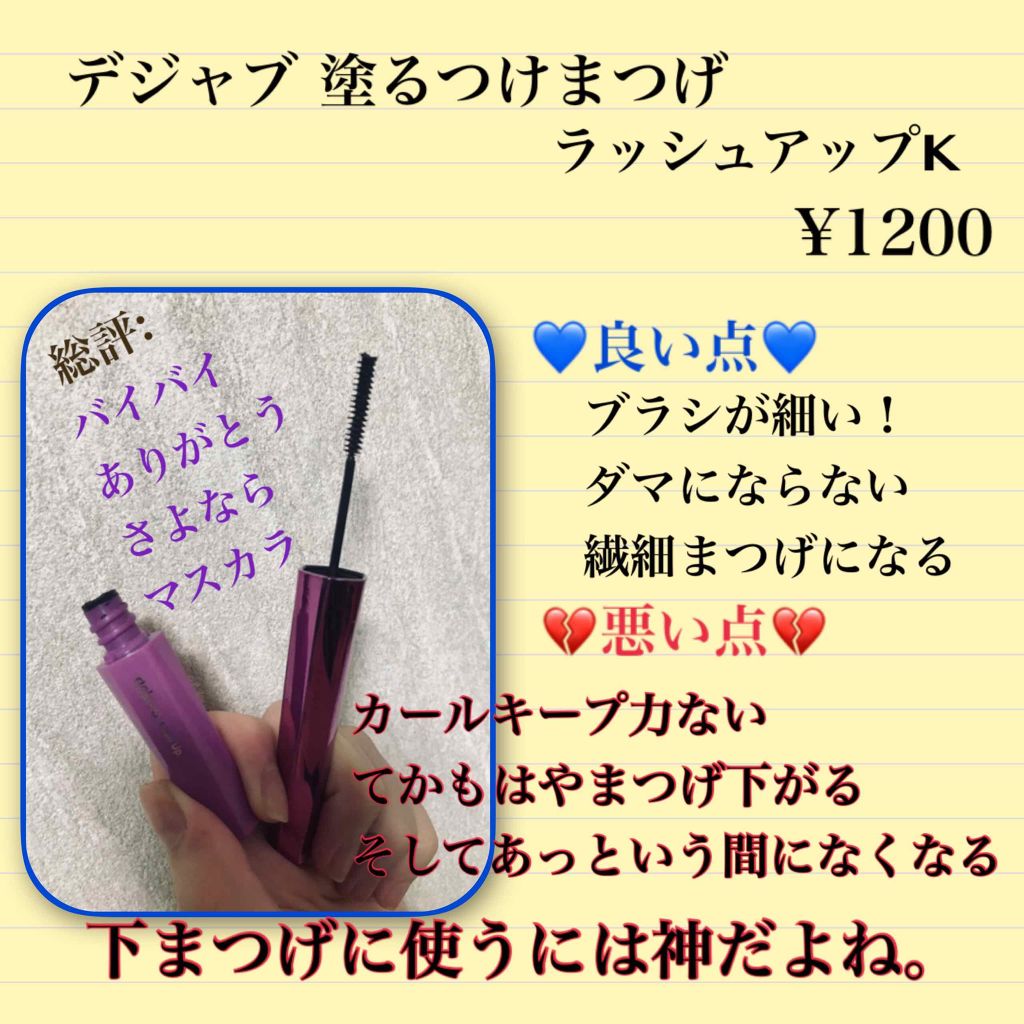 デジャブ 塗るつけまつげ
ラッシュアップK
¥1200
総評:
バイバイ
ありがとう
さよなら
マスカラ
💙良い点💙
ブラシが細い！
ダマにならない
繊細まつげになる
💔悪い点💔
カールキープ力ない
てかもはやまつげ下がる
そしてあっという間になくなる
下まつげに使うには神だよね。